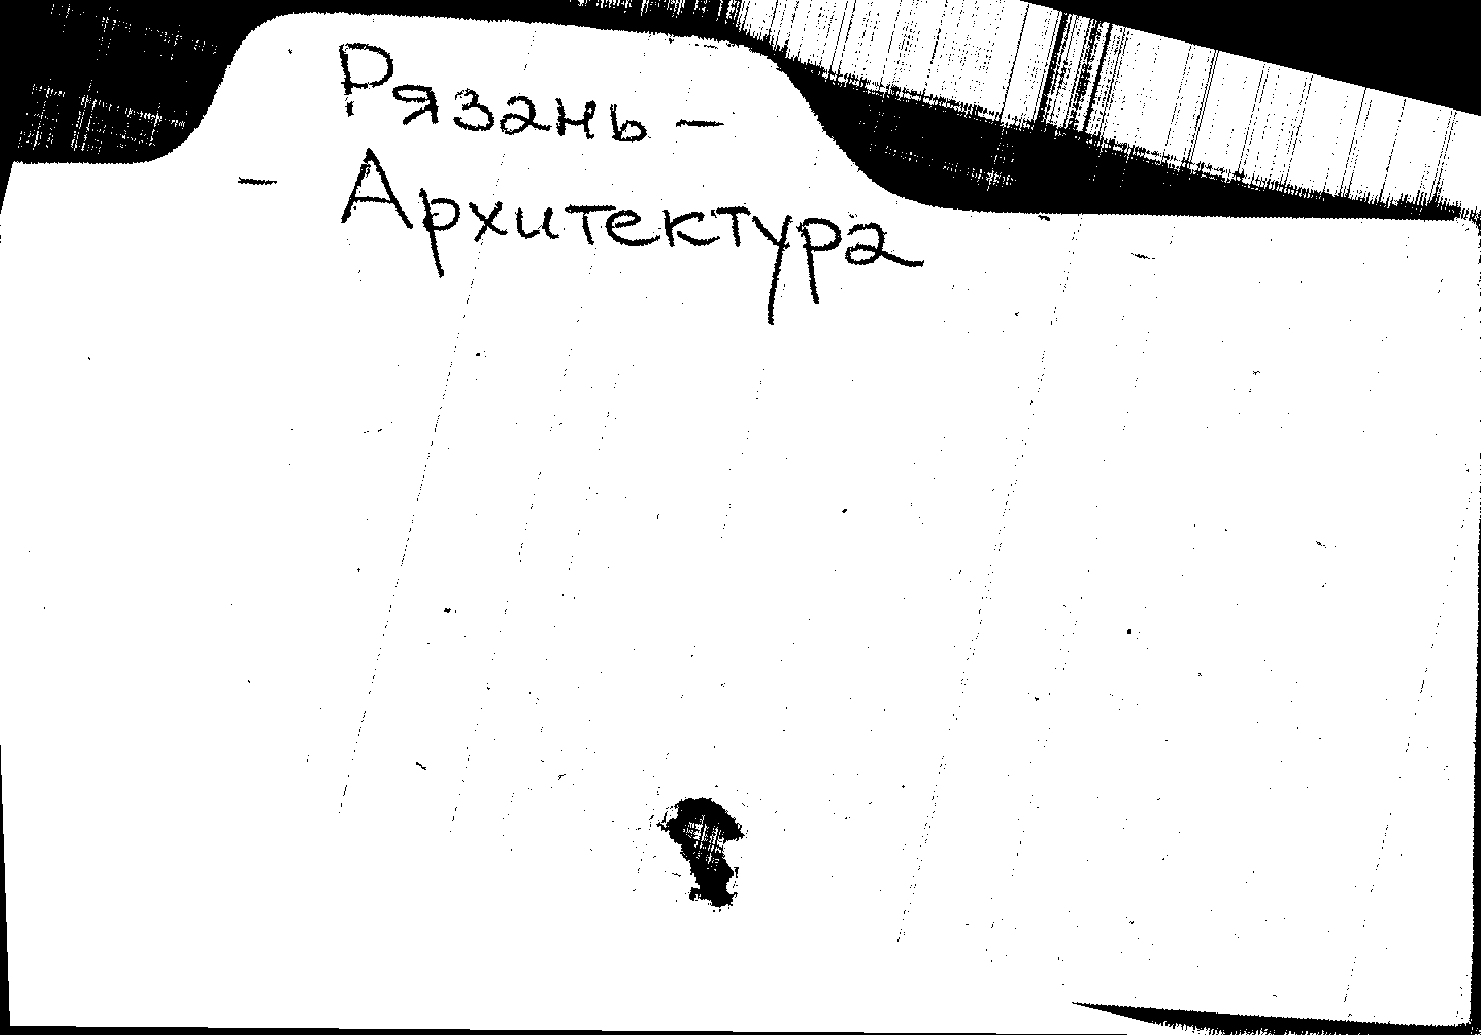 Рязань –
– Архитектура